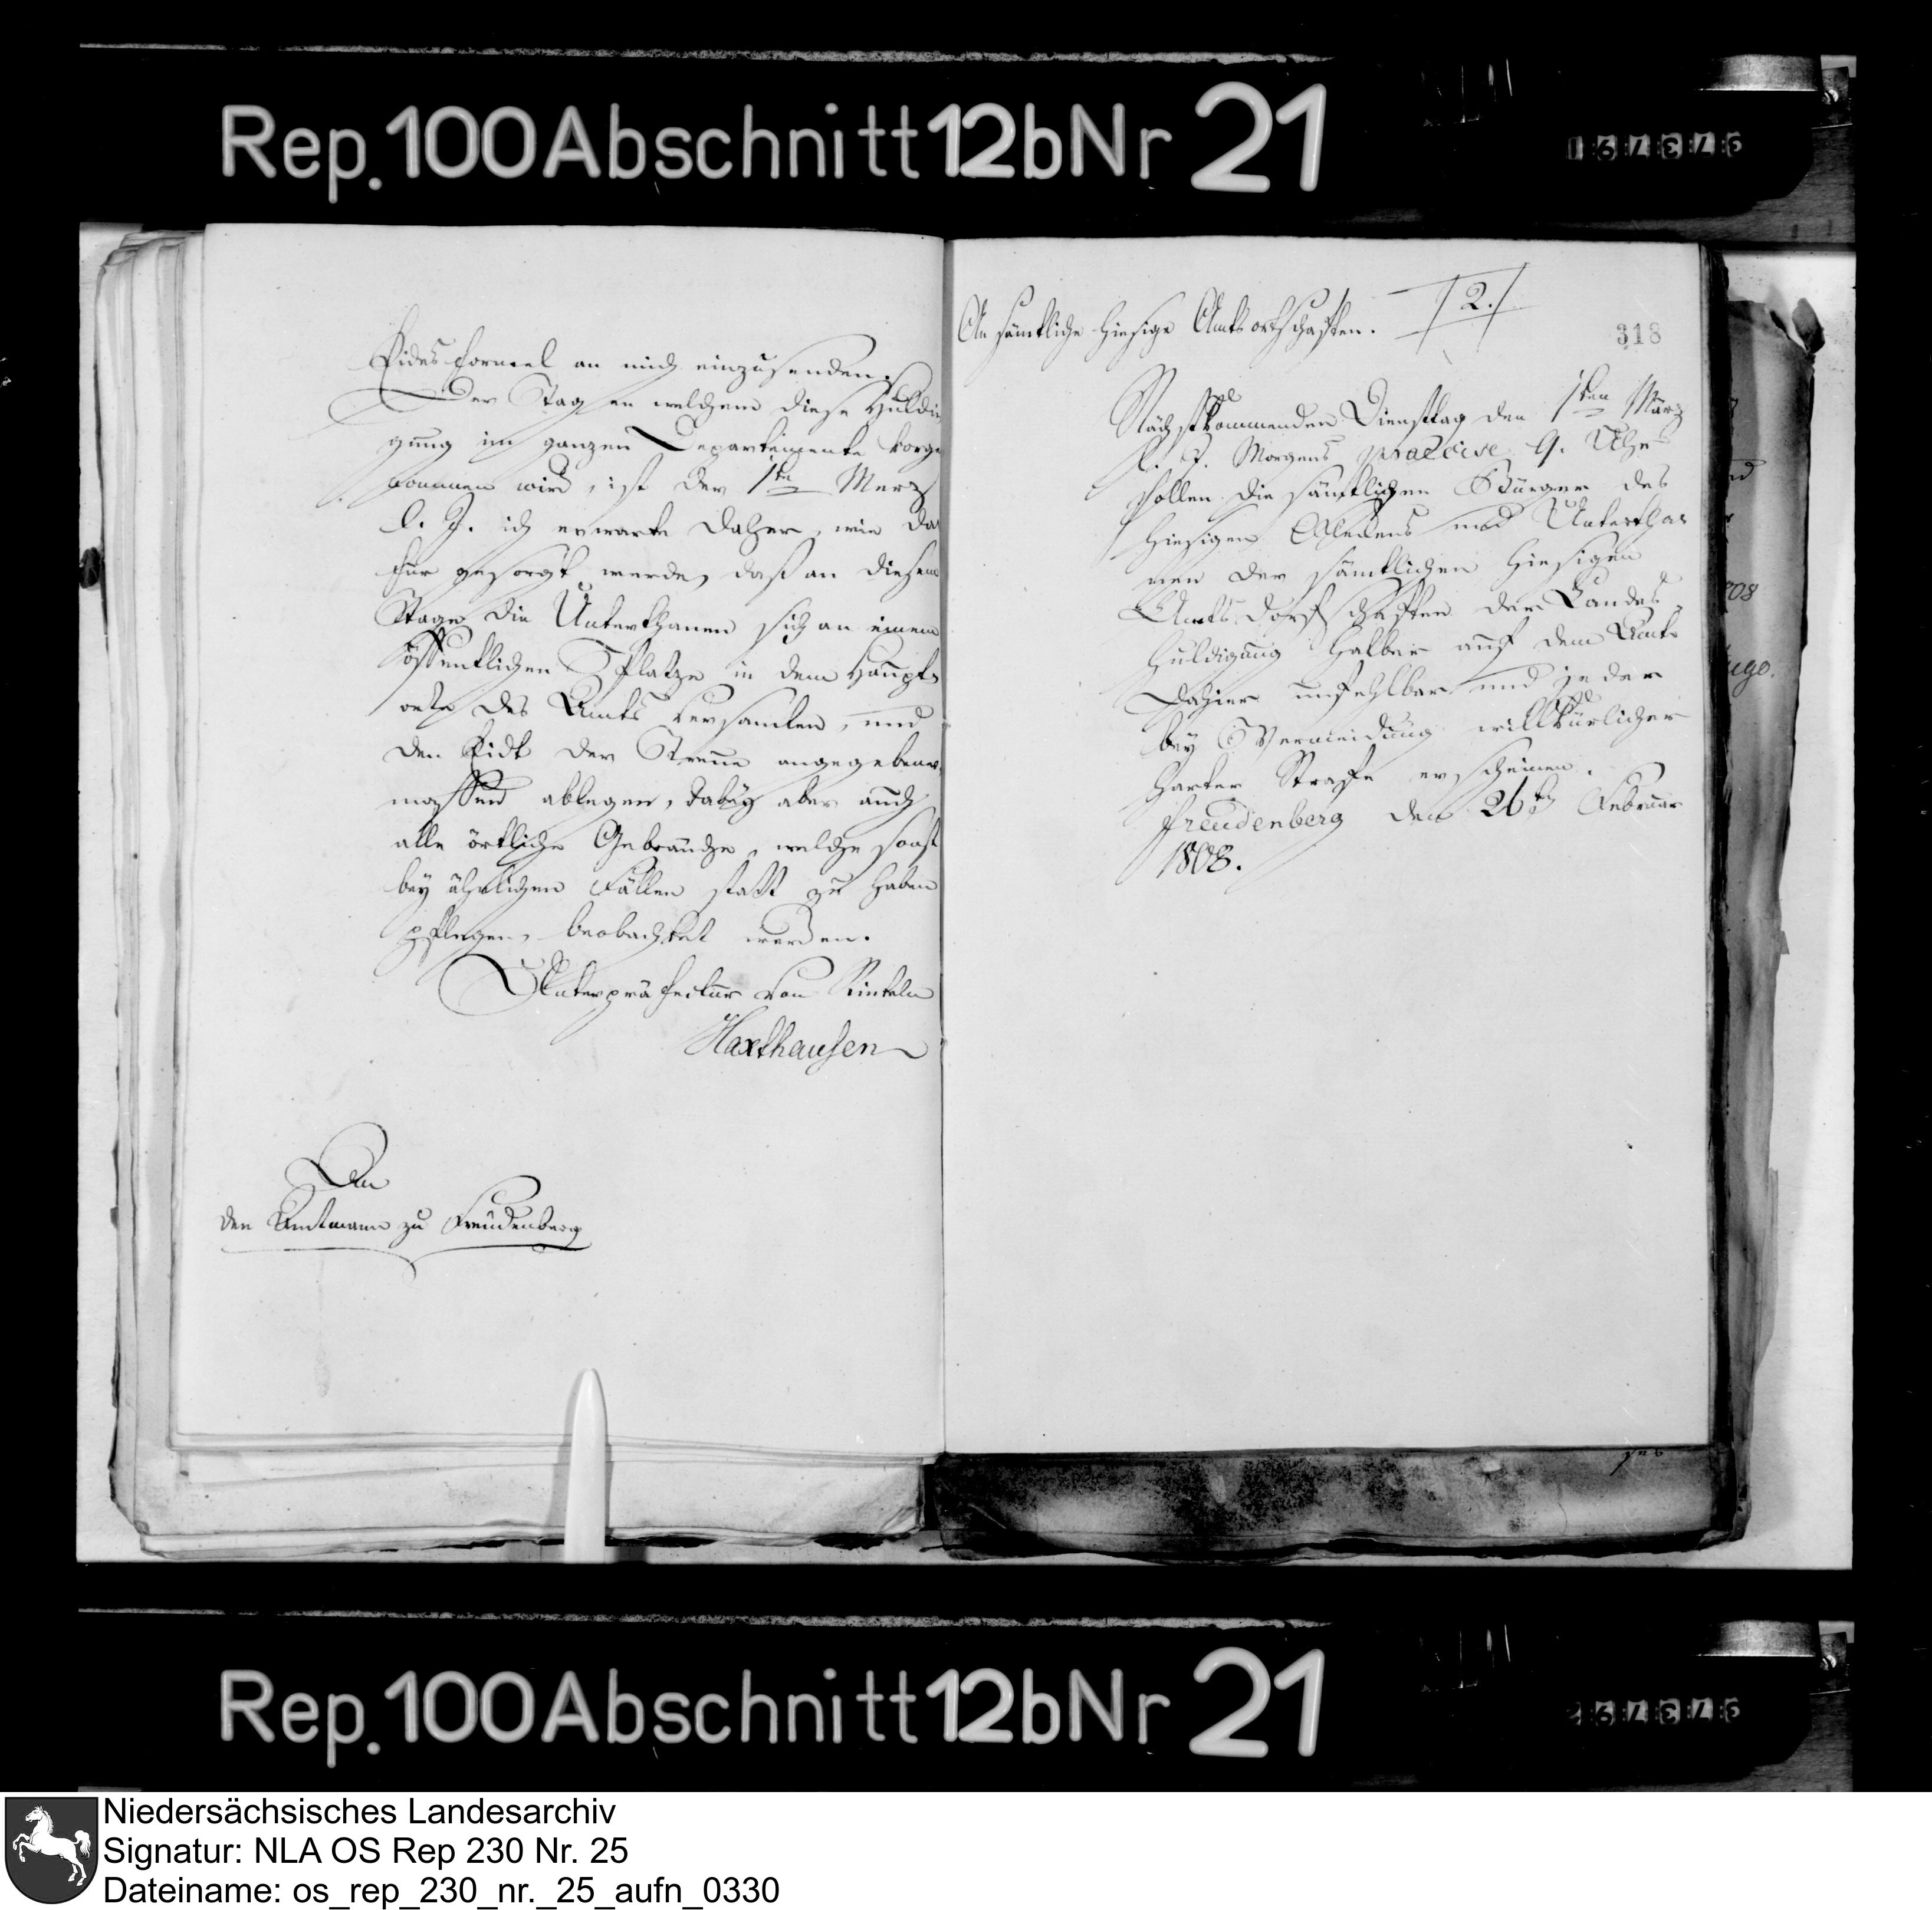 Rep. 100 Abschnitt 12b Nr 21
373791
Eides formel an mich einzusenden.
Der Tag an welchem diese Huldi
gung im ganzen Departemente vorge
nommen wird, ist der 1te Merz
l. J. ich erwarte daher, wie da
für gesorgt werde, daß an diesem
Tage die Unterthanen sich an einem
öffentlichen Platze in dem Haupt
orte des Amts versamlen, und
den Eidt der Treue angegebener
massen ablegen, dabey aber auch
alle örtliche Gebräuche, welche sonst
bey ähnlichen Fällen statt zu haben
pflegen, beobachtet werden.
Unterpräfectur von Rinteln
Haxthausen
An
den Amtmann zu Freudenberg
An sämtliche hiesige Amtsortschaften.
2.
318
Nächstkommenden Dienstag den 1ten März
l. J. Morgens praecise 9. Uhr
sollen die sämtlichen Bürger des
hiesigen Fleckens und Untertha
nen der sämtlichen hiesigen
Amts dorfschaften der Landes
huldigung halber auf dem Amte
dahier unfehlbar und jeder
bey Vermeidung willkürlicher
harter Strafe erscheinen.
Freudenberg den 26ten Februar
1808.
Rep. 100 Abschnitt 12b Nr 21
373792
Niedersächsisches Landesarchiv
Signatur: NLA OS Rep 230 Nr. 25
Dateiname: os_rep_230_nr._25_aufn_0330